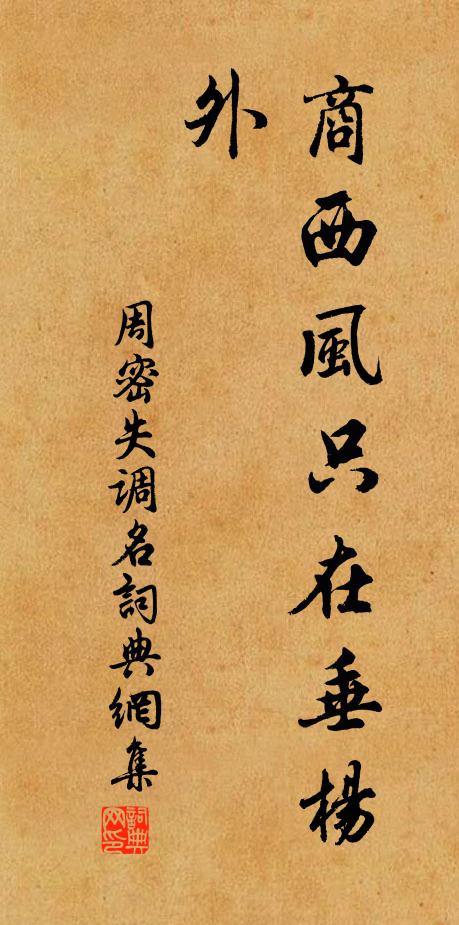 商西風只在垂楊
外
周密失调名詞典網集
詞典网印